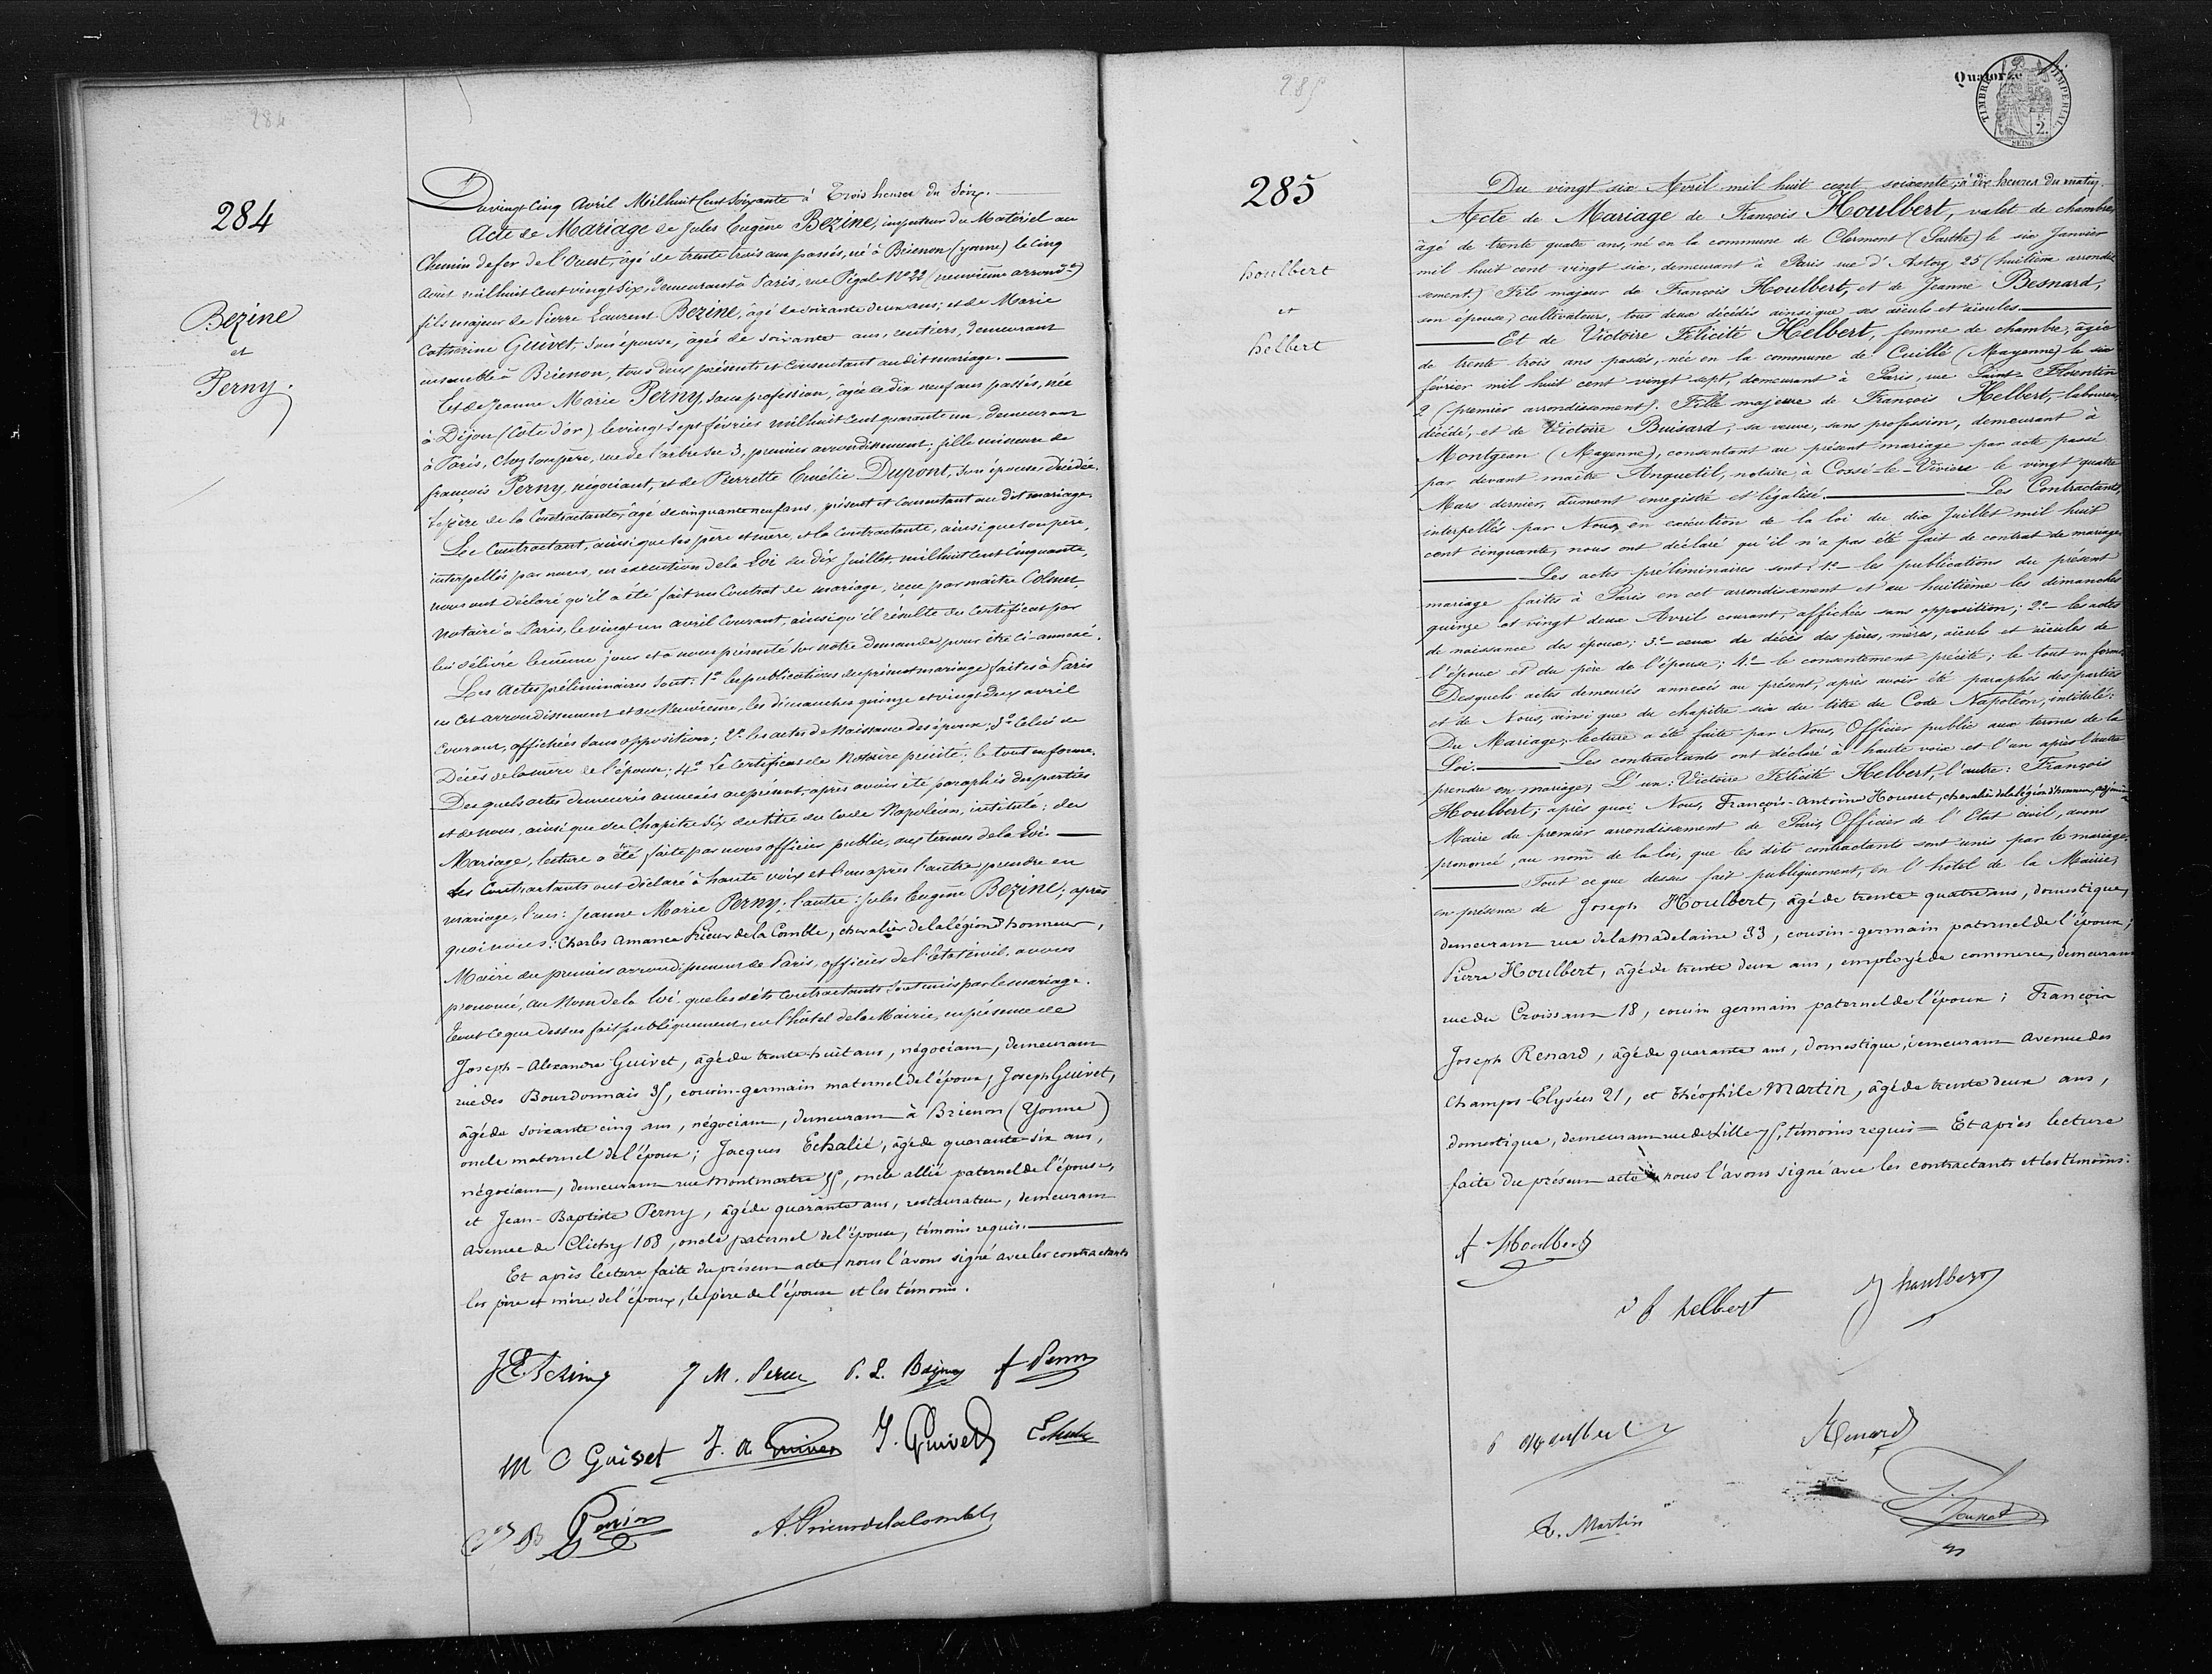 284
284
Bezine
et
Perny.
Du vingt Cinq Avril Mil huit Cent Soixante à Trois heures du Soir.
Acte de Mariage de Jules Eugène Bezine, inspecteur du Matériel au
Chemin de fer de l'Ouest, âgé de trente trois ans passés, né à Brienon (yonne) le Cinq
Août mil huit Cent vingt Six, demeurant à Paris, rue Pigale No 22 (neuvième arrondt)
fils majeur de Pierre Laurent Bezine, âgé de soixante deux ans; et de Marie
Catherine Guivet, Son épouse, âgée de soixante ans, rentiers, demeurant
ensemble à Brienon, tous deux présents et Consentant au dit mariage.
Et de Jeanne Marie Perny, Sans profession, âgée de dix neuf ans passés, née
à Dijon (Côte d'or) le vingt Sept février mil huit Cent quarante un, demeurant
à Paris, Chez Son père, rue de l'arbre Sec 3, premier arrondissement; fille mineure de
françois Perny, négociant, et de Pierrette Emélie Dupont, Son épouse, décédée.
Le père de la Contractante, âgé de cinquante neuf ans, présent et Consentant au dit mariage.
Le Contractant, ainsi que ses père et mère, et la Contractante, ainsi que son père,
interpellés par nous, en exécution de la Loi du Dix Juillet, mil huit Cent Cinquante,
nous ont déclaré qu'il a été fait un Contrat de mariage, reçu par maître Colmet
Notaire à Paris, le vingt un avril Courant, ainsi qu'il résulte du Certificat par
lui délivré le même jour et à nous présenté sur notre demande pour être Ci-annexé.
Les Actes préliminaires Sont: 1o les publications du présent mariage faites à Paris
en Cet arrondissement et au Neuvième, les dimanches quinze et vingt deux avril
Courant, affichées Sans opposition; 2o les actes de Naissance des époux; 3o Celui de
Décès de la mère de l'épouse; 4o Le Certificat du Notaire précité; le tout en forme.
Desquels actes demeurés annexés au présent, après avoir été paraphés des parties
et de nous, ainsi que du Chapitre Six du titre du Code Napoléon, intitulé: du
Mariage, lecture a été faite par nous officier public, aux termes de la Loi.
Les Contractants ont déclaré à haute voix et l'un après l'autre prendre en
mariage, l'un: Jeanne Marie Perny; l'autre: Jules Eugène Bezine; après
quoi nous: Charles Amance Prieur de la Comble, chevalier de la légion d'honneur,
Maire du premier arrondissement de Paris, officier de l'état civil, avons
prononcé, au Nom de la loi, que les dits Contractants Sont unis par le mariage.
Tout Ce que dessus fait publiquement, en l'hôtel de la Mairie, en présence de
Joseph-Alexandre Guivet, âgé de trente-huit ans, négociant, demeurant
rue des Bourdonnais 35, cousin-germain maternel de l'époux; Joseph Guivet,
âgé de soixante cinq ans, négociant, demeurant à Brienon (Yonne)
oncle maternel de l'époux; Jacques Echalié, âgé de quarante-six ans,
négociant, demeurant rue Montmartre 55, oncle allié paternel de l'épouse,
et Jean-Baptiste Perny, âgé de quarante ans, restaurateur, demeurant
avenue de Clichy 108, oncle paternel de l'épouse, témoins requis.
Et après lecture faite du présent acte, nous l'avons signé avec les contractants
les père et mère de l'époux, le père de l'épouse et les témoins.
J. M. Perny P. L. Bezine f Perny
M C Guivet J. A Guivet J. Guivet
A. Prieur de la Comble
285
Quatorze
TIMBRE IMPÉRIAL
2.
SEINE
285
houlbert
et
helbert
Du vingt six Avril mil huit cent soixante, à dix heures du matin.
Acte de Mariage de François Houlbert, valet de chambre,
âgé de trente quatre ans, né en la commune de Clermont (Sarthe) le six Janvier
mil huit cent vingt six, demeurant à Paris rue d'Astorg 25 (huitième arrondis-
sement.) Fils majeur de François Houlbert, et de Jeanne Besnard,
son épouse, cultivateurs, tous deux décédés ainsi que ses aïeuls et aïeules.
Et de Victoire Félicité Helbert, femme de chambre, âgée
de trente trois ans passés, née en la commune de Cuillé (Mayenne) le six
février mil huit cent vingt sept, demeurant à Paris, rue Saint-Florentin
2 (premier arrondissement). Fille majeure de François Helbert, laboureur,
décédé, et de Victoire Buisard, sa veuve, sans profession, demeurant à
Montjean (Mayenne), consentant au présent mariage par acte passé
par devant maître Anquetil, notaire à Cossé-le-Vivien le vingt quatre
Mars dernier, dûment enregistré et légalisé. Les Contractants,
interpellés par Nous, en exécution de la loi du dix Juillet mil huit
cent cinquante, nous ont déclaré qu'il n'a pas été fait de contrat de mariage.
Les actes préliminaires sont: 1o les publications du présent
mariage faites à Paris en cet arrondissement et au huitième les dimanches
quinze et vingt deux Avril courant, affichées sans opposition; 2o les actes
de naissance des époux; 3o ceux de décès des pères, mères, aïeuls et aïeules de
l'époux et du père de l'épouse; 4o le consentement précité; le tout en forme.
Desquels actes demeurés annexés au présent, après avoir été paraphés des parties
et de Nous, ainsi que du chapitre six du titre du Code Napoléon, intitulé:
Du Mariage, lecture a été faite par Nous, Officier public aux termes de la
Loi. Les contractants ont déclaré à haute voix et l'un après l'autre
prendre en mariage, L'un: Victoire Félicité Helbert, l'autre: François
Houlbert; après quoi Nous, François-Antoine Housset, chevalier de la légion d'honneur, adjoint au
Maire du premier arrondissement de Paris, Officier de l'Etat civil, avons
prononcé, au nom de la loi, que les dits contractants sont unis par le mariage.
Tout ce que dessus fait publiquement, en l'hôtel de la Mairie,
en présence de Joseph Houlbert, âgé de trente-quatre ans, domestique,
demeurant rue de la Madelaine 33, cousin-germain paternel de l'époux;
Pierre Houlbert, âgé de trente deux ans, employé de commerce, demeurant
rue du Croissant 18, cousin germain paternel de l'époux; François
Joseph Renard, âgé de quarante ans, domestique, demeurant Avenue des
Champs-Elysées 21, et Théophile Martin, âgé de trente deux ans,
domestique, demeurant rue de Lille 75, témoins requis = Et après lecture
faite du présent acte nous l'avons signé avec les contractants et les témoins.
f Houlbert
v f helbert J houlbert
Renard
T. Martin